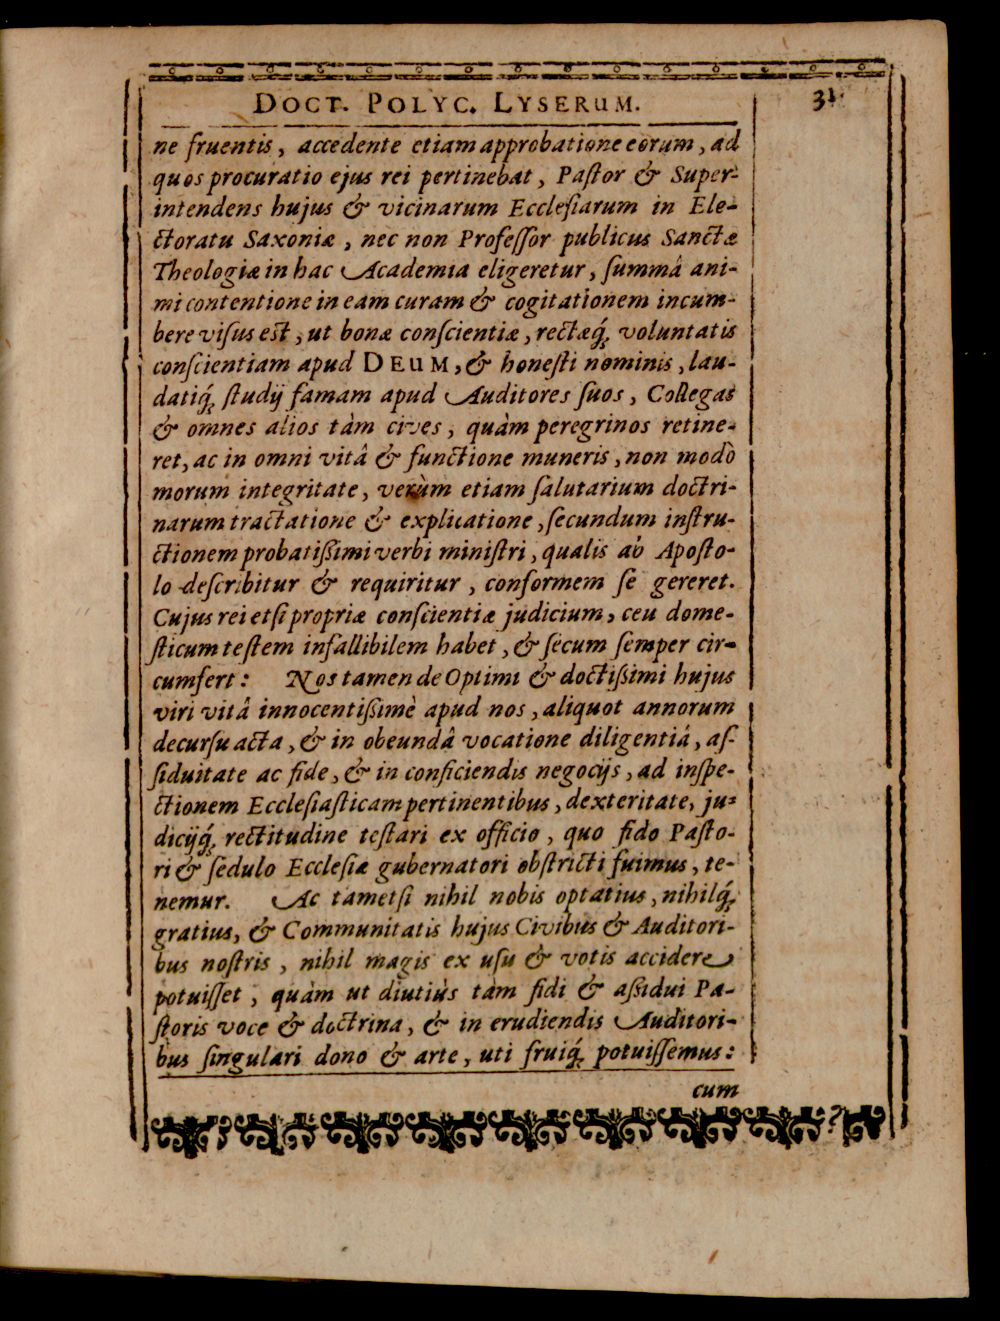 DOCT. POLYC. LYSERUM. 31.
ne fruentis, accedente etiam approbatione eorum, ad
quos procuratio ejus rei pertinebat, Paſtor & Super-
intendens hujus & vicinarum Eccleſiarum in Ele-
ctoratu Saxoniæ, nec non Profeſſor publicus Sanctæ
Theologiæ in hac Academia eligeretur, ſummâ ani-
mi contentione in eam curam & cogitationem incum-
bere viſus est, ut bonæ conſcientiæ, rectæq́; voluntatis
conſcientiam apud DEUM, & honeſti nominis, lau-
datiq́; ſtudij famam apud Auditores ſuos, Collegas
& omnes alios tàm cives, quàm peregrinos retine-
ret, ac in omni vitâ & functione muneris, non modò
morum integritate, verùm etiam ſalutarium doctri-
narum tractatione & explicatione, ſecundum inſtru-
ctionem probatißimi verbi miniſtri, qualis ab Apoſto-
lo deſcribitur & requiritur, conformem ſe gereret.
Cujus rei etſi propriæ conſcientiæ judicium, ceu dome-
ſticum teſtem infallibilem habet, & ſecum ſemper cir-
cumfert: Nos tamen de Optimi & doctißimi hujus
viri vitâ innocentißimè apud nos, aliquot annorum
decurſu acta, & in obeundâ vocatione diligentiâ, aſ-
ſiduitate ac fide, & in conficiendis negocijs, ad inſpe-
ctionem Eccleſiaſticam pertinentibus, dexteritate, ju-
dicijq́; rectitudine teſtari ex officio, quo fido Paſto-
ri & ſedulo Eccleſiæ gubernatori obſtricti fuimus, te-
nemur. Ac tametſi nihil nobis optatius, nihilq́;
gratius, & Communitatis hujus Civibus & Auditori-
bus noſtris, nihil magis ex uſu & votis accidere
potuiſſet, quàm ut diutiùs tàm fidi & aßidui Pa-
ſtoris voce & doctrina, & in erudiendis Auditori-
bus ſingulari dono & arte, uti fruiq́; potuiſſemus:
cum